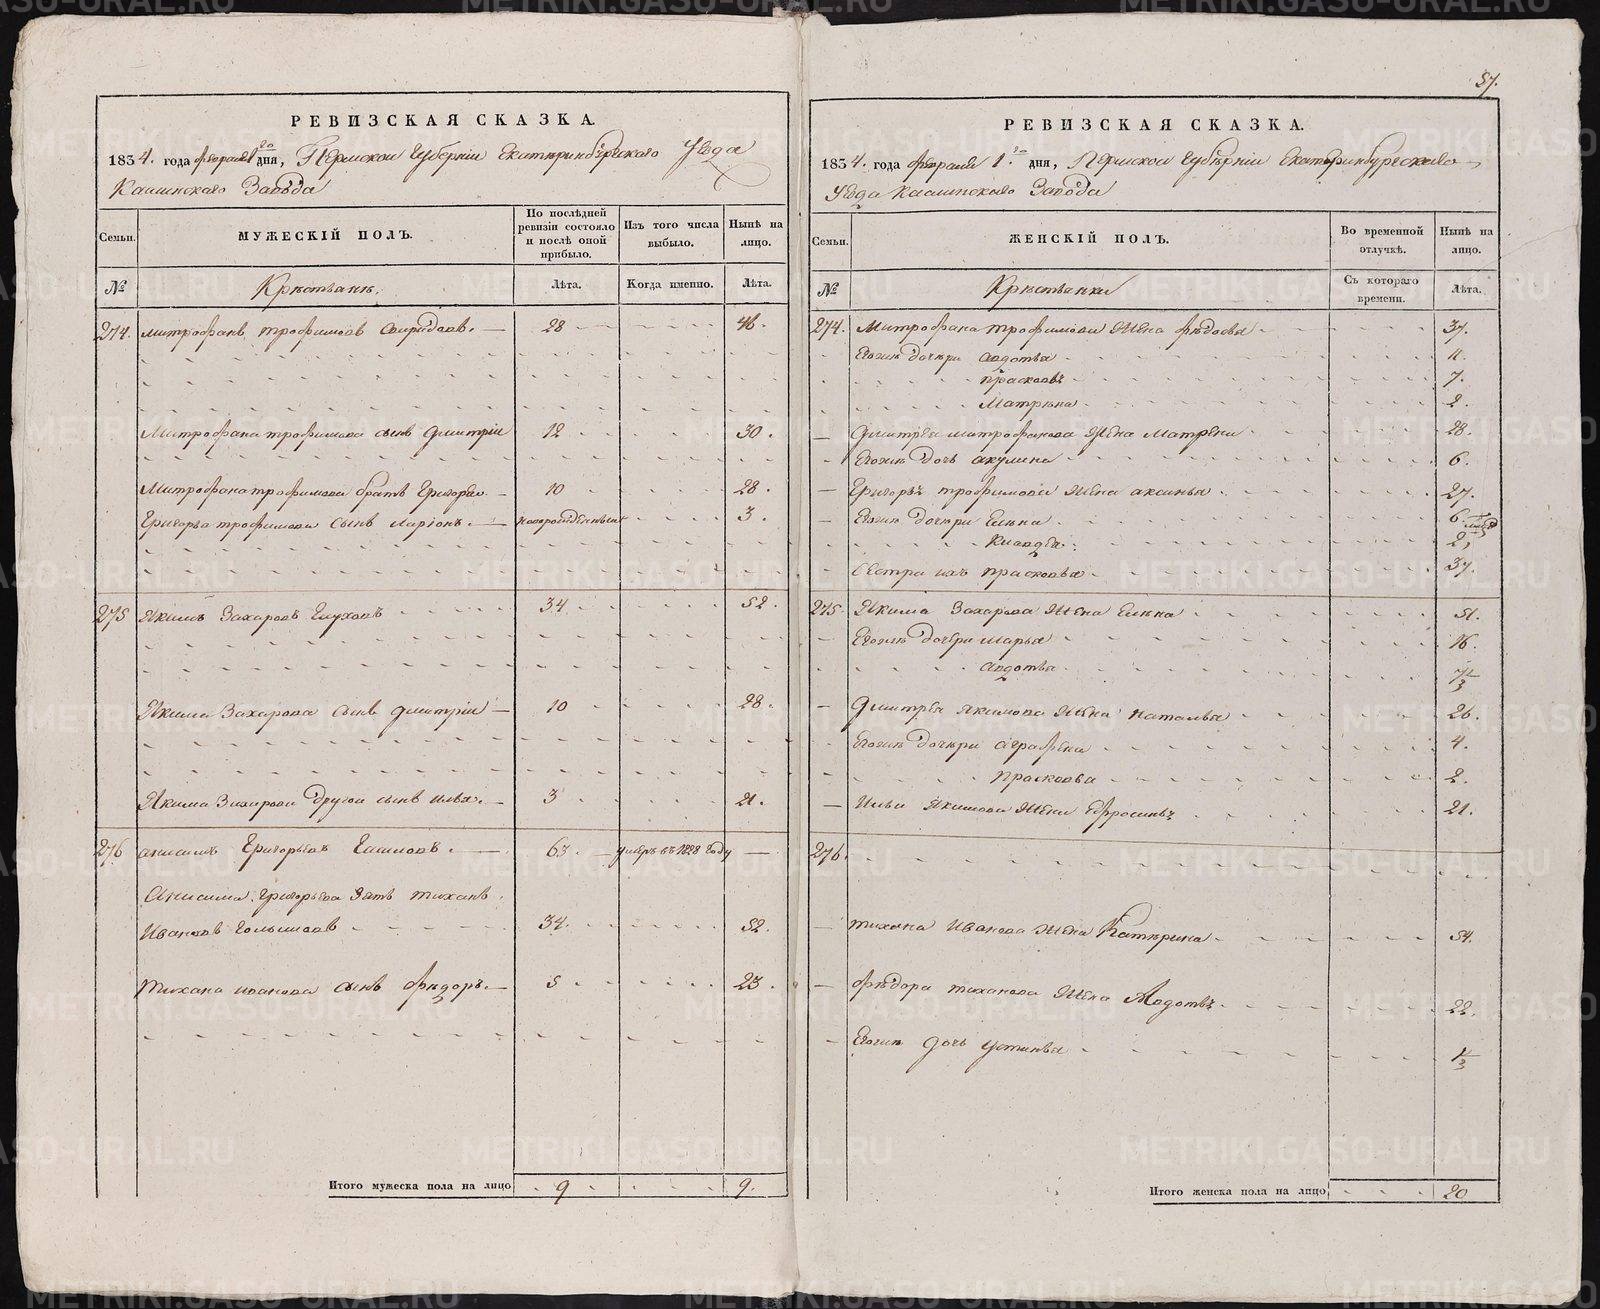 57.
РЕВИЗСКАЯ СКАЗКА.
1834. года февраля 1го дня, Пермской Губерніи Екатеринбургскаго Уезда
Каслинскаго Завода
Семьи.
МУЖЕСКІЙ ПОЛЪ.
По послѣдней ревизіи состояло и послѣ оной прибыло.
Изъ того числа выбыло.
Нынѣ на лицо.
№
Крѣстьянѣ.
Лѣта.
Когда именно.
Лѣта.
274. Митрофанъ трофимовъ Свиридовъ. 28 46.
Митрофана трофимова сынъ Дмитріи 12 30.
Митрофана трофимова братъ Григорѣи 10 28.
Григорья трофимова сынъ Ларіонъ. новорожденныи 3.
275 Якимъ Захаровъ Глуховъ 34 52.
Якима Захарова сынъ Дмитріи 10 28.
Якима Захарова другой сынъ Илья. 3 21.
276 Анисимъ Григорьевъ 63. умеръ въ 1828 году
Анисима Григорьева Зять тиханъ
Ивановъ Голышовъ 34. 52.
Тихана иванова сынъ Фѣдоръ. 5 23.
Итого мужеска пола на лицо 9 9.
РЕВИЗСКАЯ СКАЗКА.
1834. года февраля 1.го дня, Пермской Губѣрніи Екатеринбургскаго
Уезда Каслинскаго Завода
Семьи.
ЖЕНСКІЙ ПОЛЪ.
Во временной отлучкѣ.
Нынѣ на лицо.
№
Крѣстьянки
Съ котораго времени.
Лѣта.
274. Митрофана трофимова Жена Фѣдосья 37.
Егожѣ дочѣри Авдотья 11.
Прасковья 7.
Матрѣна 2.
Дмитрея митрофанова Жена Матрена 28.
Егожѣ дочь акулина 6.
Григорья трофимова Жена аксинья 27.
Егожѣ дочѣри Елѣна 6
Клавдея 2,
Сестра ихъ прасковья 37.
275. Якима Захарова Жена Елѣна 51.
Егожѣ дочери марья 16.
Авдотья 7/3
Дмитрея якимова Жена Наталья 26.
Егожѣ дочѣри аграфѣна 4.
Прасковья 2.
Ильи Якимова Жена Ефросинья 21.
276.
тихана Иванова Жена Катѣрина 54.
Фѣдора тиханова Жена Авдотья 22.
Егожѣ дочь Устинья 1/3
Итого женска пола на лицо 20
METRIKI.GASO-URAL.RU